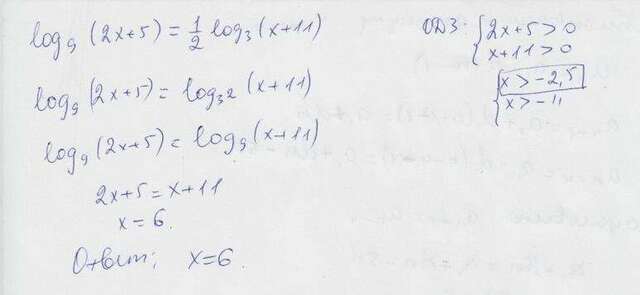 log₉(2x+5) = 1/2 log₃(x+11)
log₉(2x+5) = log₃2(x+11)
log₉(2x+5) = log₉(x+11)
2x+5 = x+11
x = 6.
Ответ: x=6.
ОДЗ: { 2x+5 > 0
x+11 > 0
{ x > -2,5
x > -11